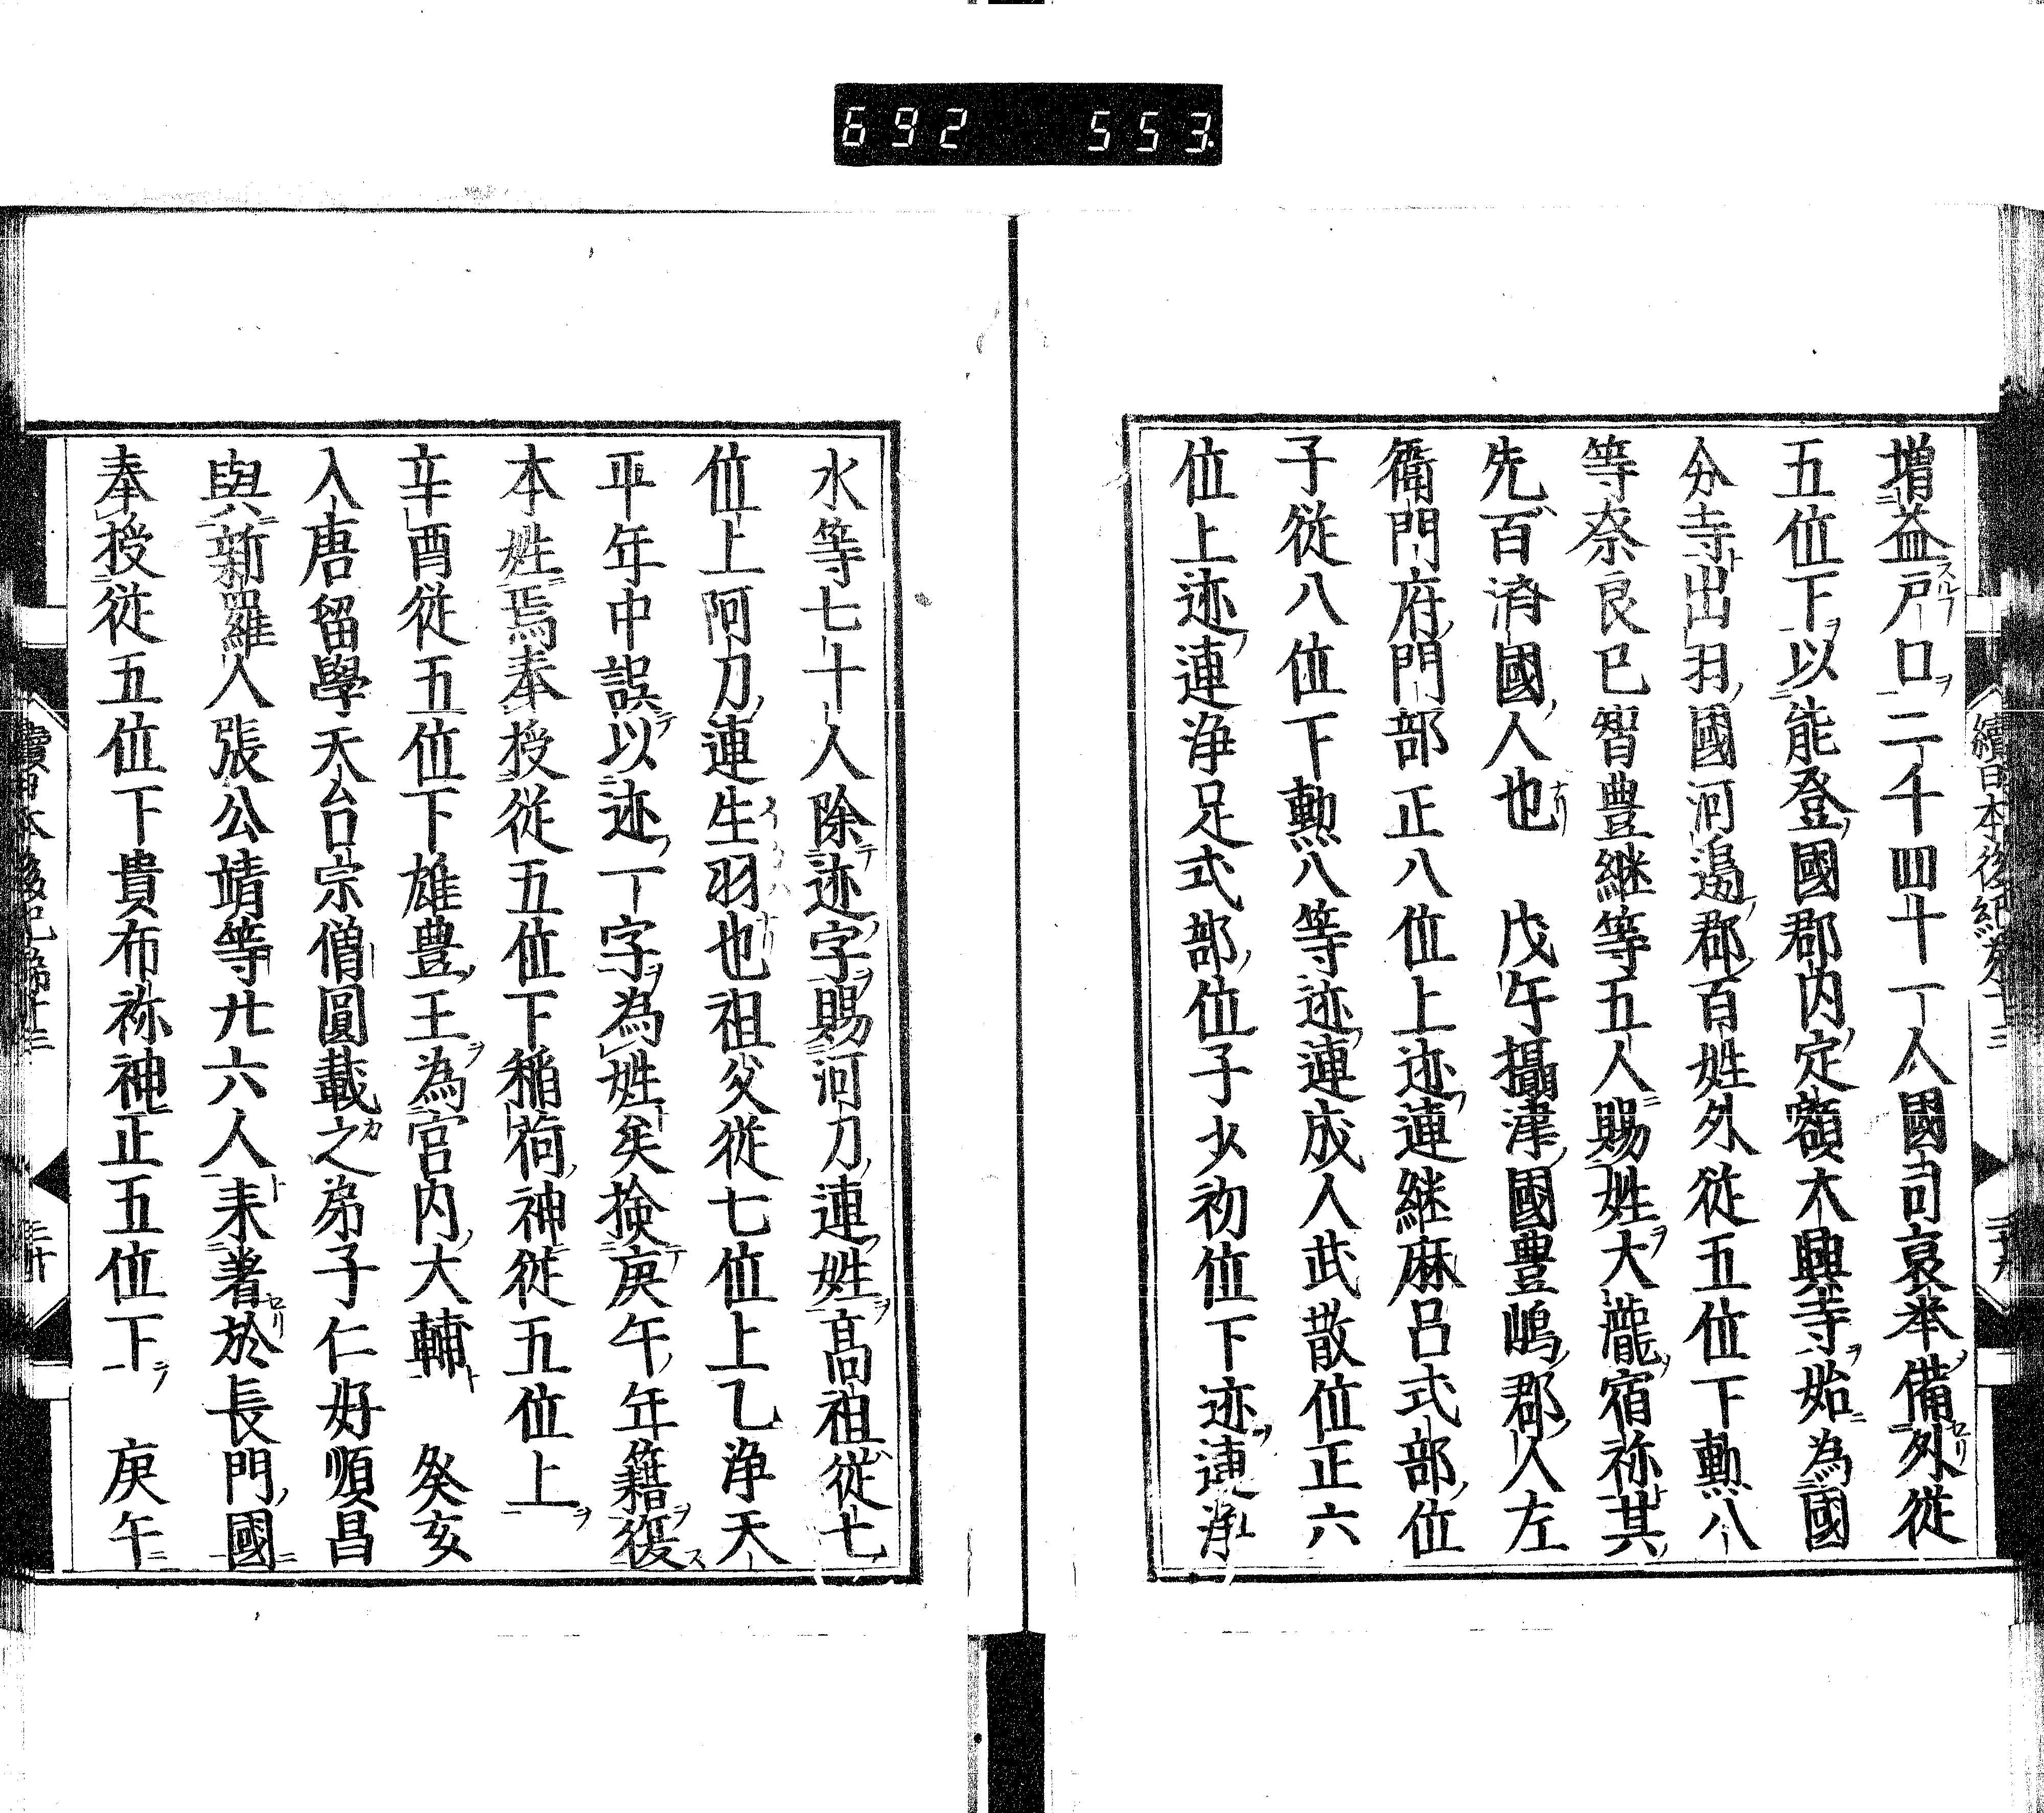 692 553
續日本後紀卷十三
増益戸口二千四十一人國司褒挙備外従
五位下以能登國郡内定額大興寺始為國
分寺出羽國河邉郡百姓外従五位下勲八
等奈良已智豊継等五人賜姓大瀧宿祢其
先百済國人也 戊午攝津國豊嶋郡人左
衛門府門部正八位上迹連継麻呂式部位
子従八位下勲八等迹連成人武散位正六
位上迹連浄足式部位子少初位下迹連浄
水等七十人除迹字賜阿刀連姓髙祖従七
位上阿刀連生羽也祖父従七位上乙浄天
平年中誤以迹一字為姓矣撿庚午年籍復
本姓焉奉授従五位下稲荷神従五位上
辛酉従五位下雄豊王為宮内大輔 癸亥
入唐留學天台宗僧圓載之弟子仁好順昌
與新羅人張公靖等廿六人来著於長門國
奉授従五位下貴布祢神正五位下 庚午
續日本後紀卷十三
三十